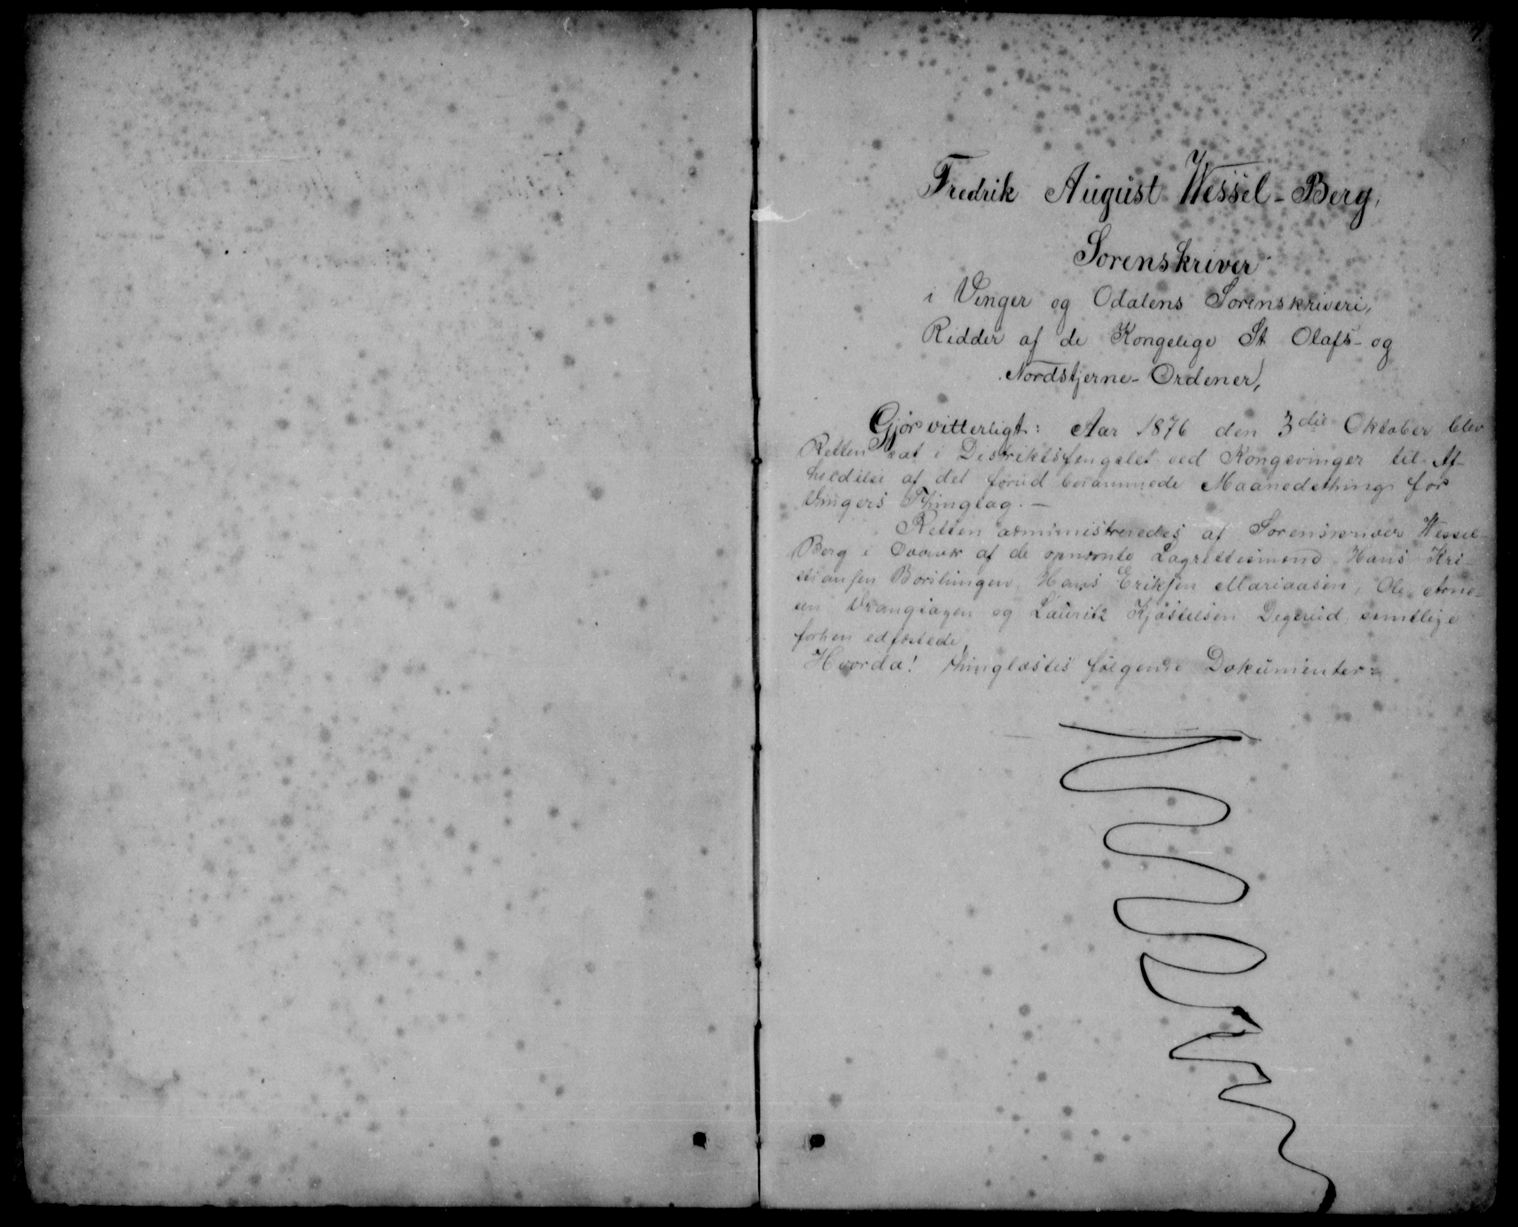 Fredrik August Wessel-Berg,
Sorenskriver
i Vinger og Odalens Sorenskriveri,
Ridder af de Kongelige St Olafs- og
Nordstjerne-Ordener,
Gjør vitterligt: Aar 1876 den 3die Oktober blev
Retten sat i Distriktsfengslet ved Kongsvinger til Af-
holdelse af det forud berammede Maanedsthing for
Vingers Thinglag. —
Retten administreredes af Sorenskriver Wessel-
Berg i Overvær af de opnævnte Lagrettesmænd Hans Kri-
stiansen Hans Eriksen Mariaasen, Ole Arne-
sen Vrangsagen og Lauritz Kjøstelsen Digerud, samtlige
forhen edfæstede,
Hvorda! thinglæstes følgende Dokumenter: